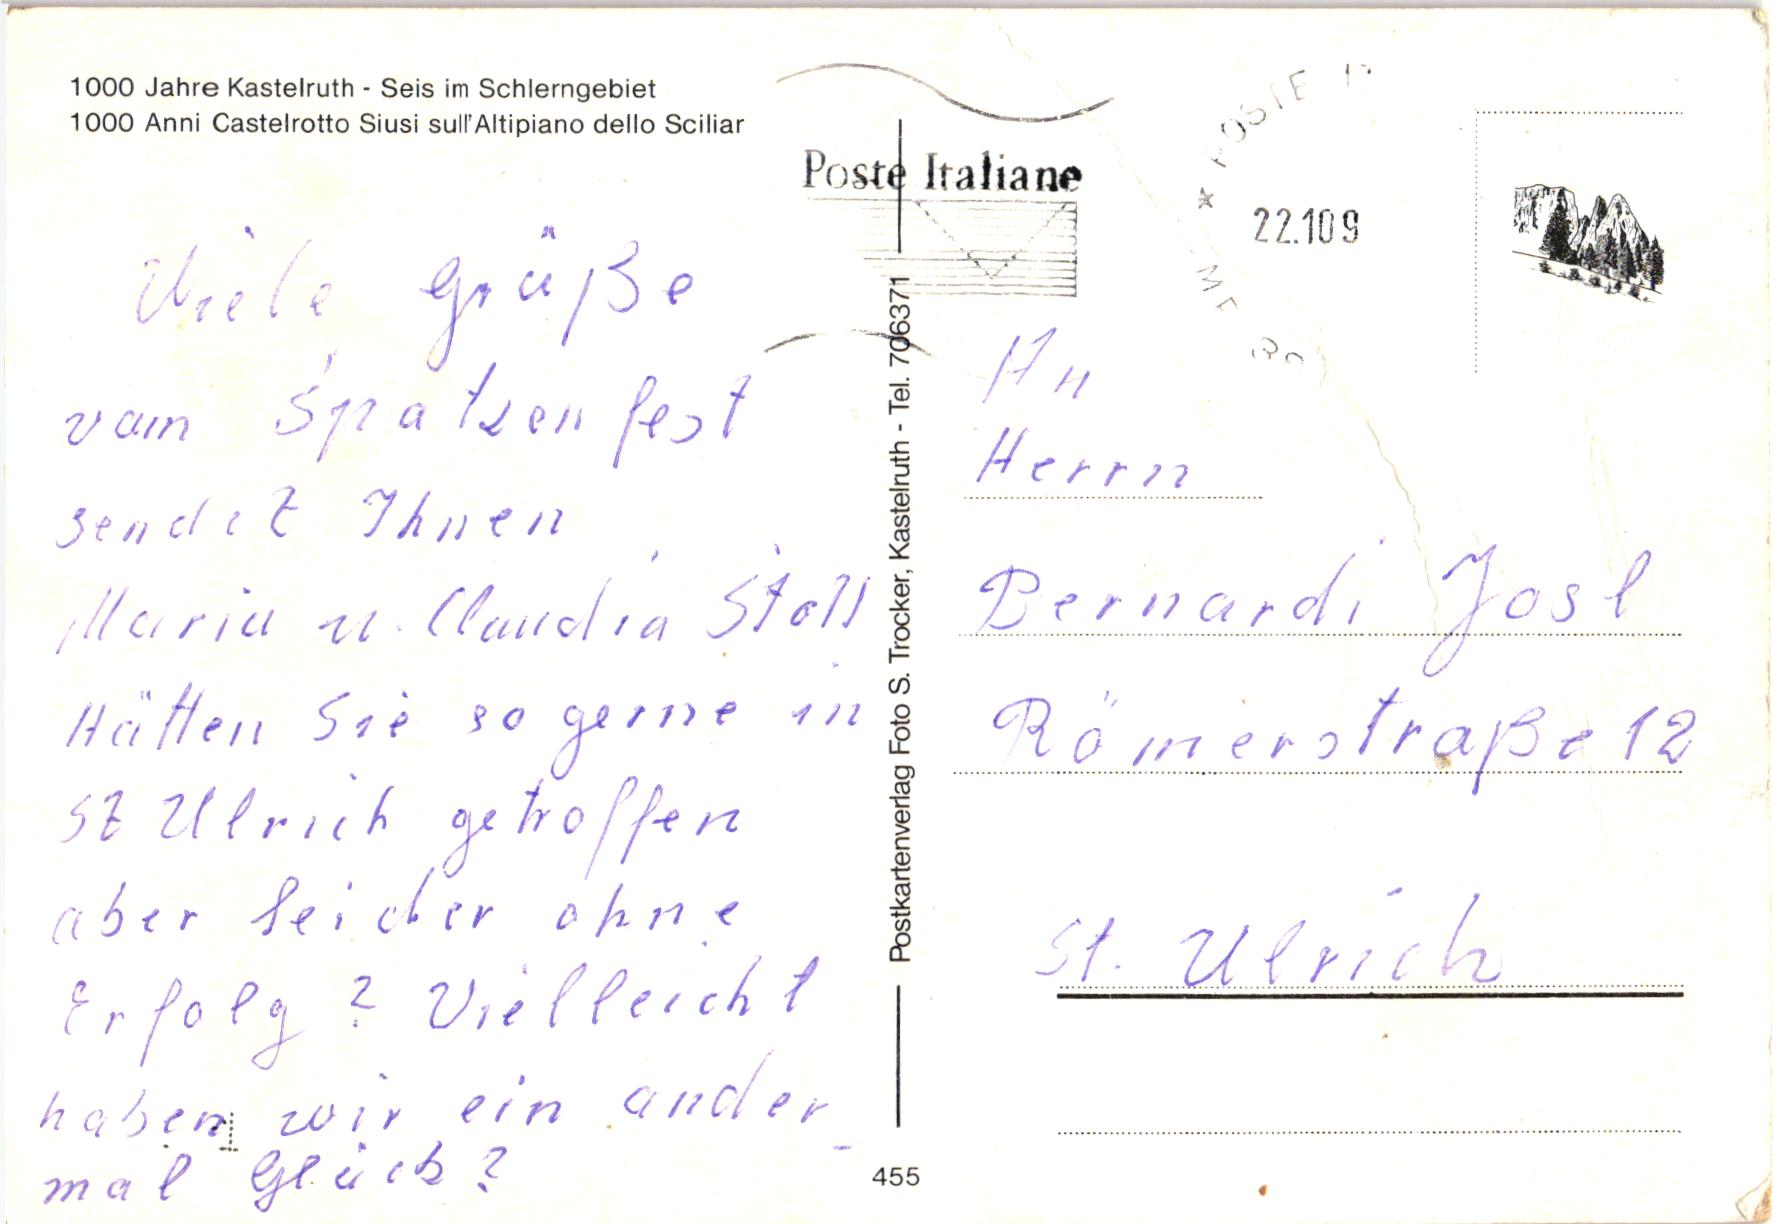 1000 Jahre Kastelruth - Seis im Schlerngebiet
1000 Anni Castelrotto Siusi sull'Altipiano dello Sciliar
Viele Grüße
vom Spatzenfest
sendet Ihnen
Maria u. Claudia Stoll
Hätten Sie so gerne in
St Ulrich getroffen
aber leider ohne
Erfolg? Vielleicht
haben wir ein ander-
mal Glück?
Poste Italiane
POSTE
22.10 9
Postkartenverlag Foto S. Trocker, Kastelruth - Tel. 706371
455
An
Herrn
Bernardi Josl
Römerstraße 12
St. Ulrich